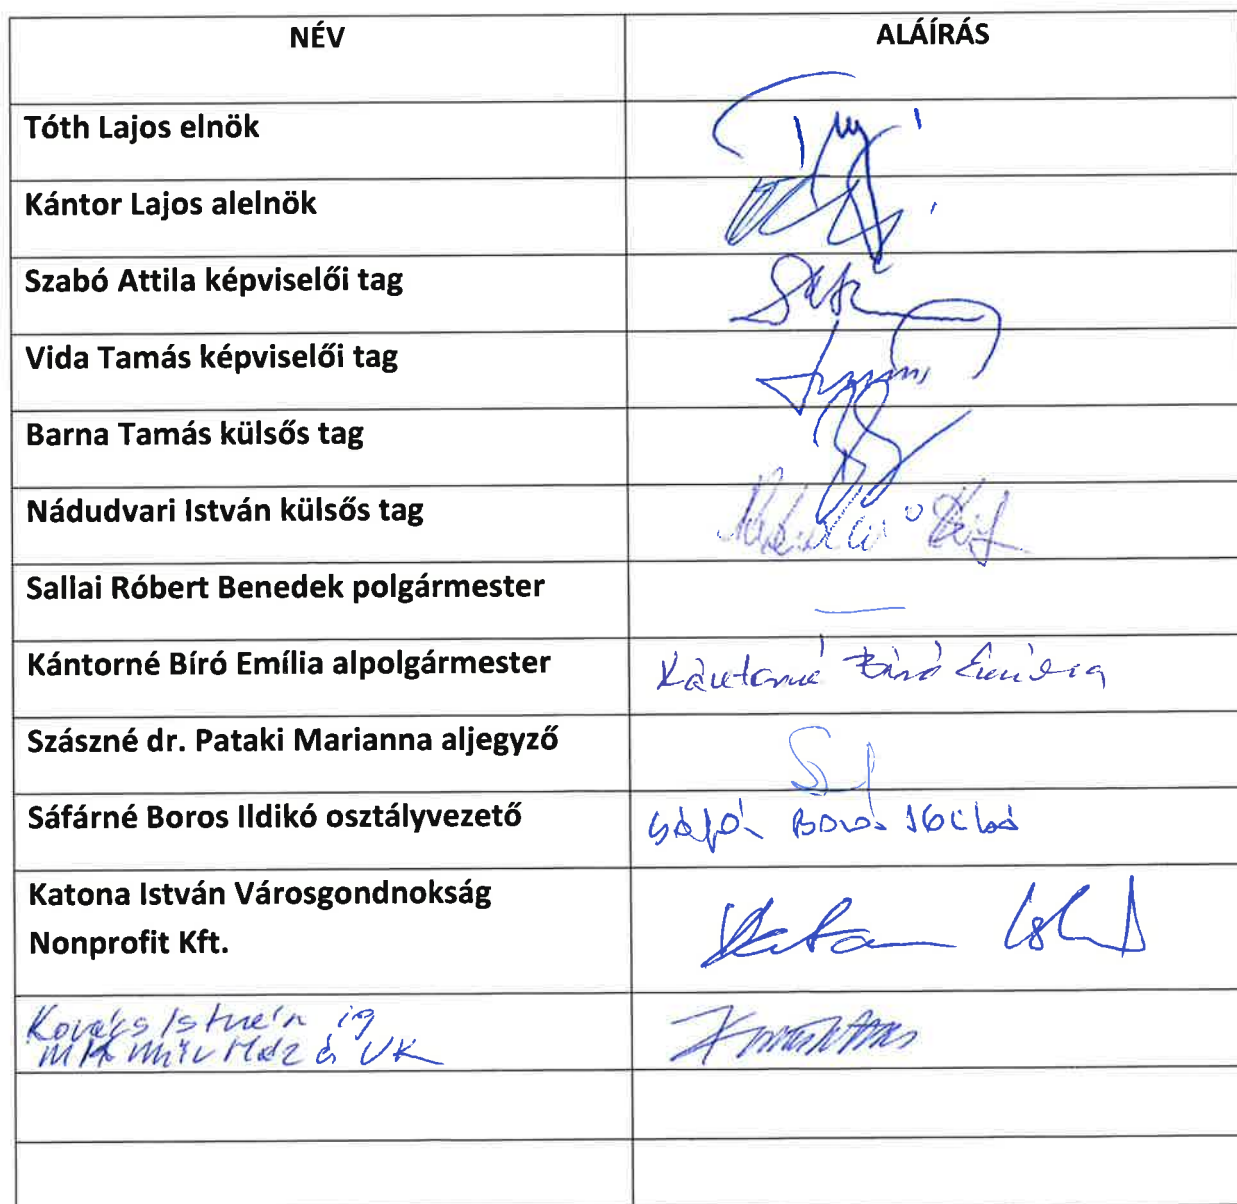 NÉV ALÁÍRÁS
Tóth Lajos elnök
Kántor Lajos alelnök
Szabó Attila képviselői tag
Vida Tamás képviselői tag
Barna Tamás külsős tag
Nádudvari István külsős tag
Sallai Róbert Benedek polgármester
Kántorné Bíró Emília alpolgármester Kántorné Bíró Emília
Szászné dr. Pataki Marianna aljegyző
Sáfárné Boros Ildikó osztályvezető
Katona István Városgondnokság
Nonprofit Kft.
Kovács István ig